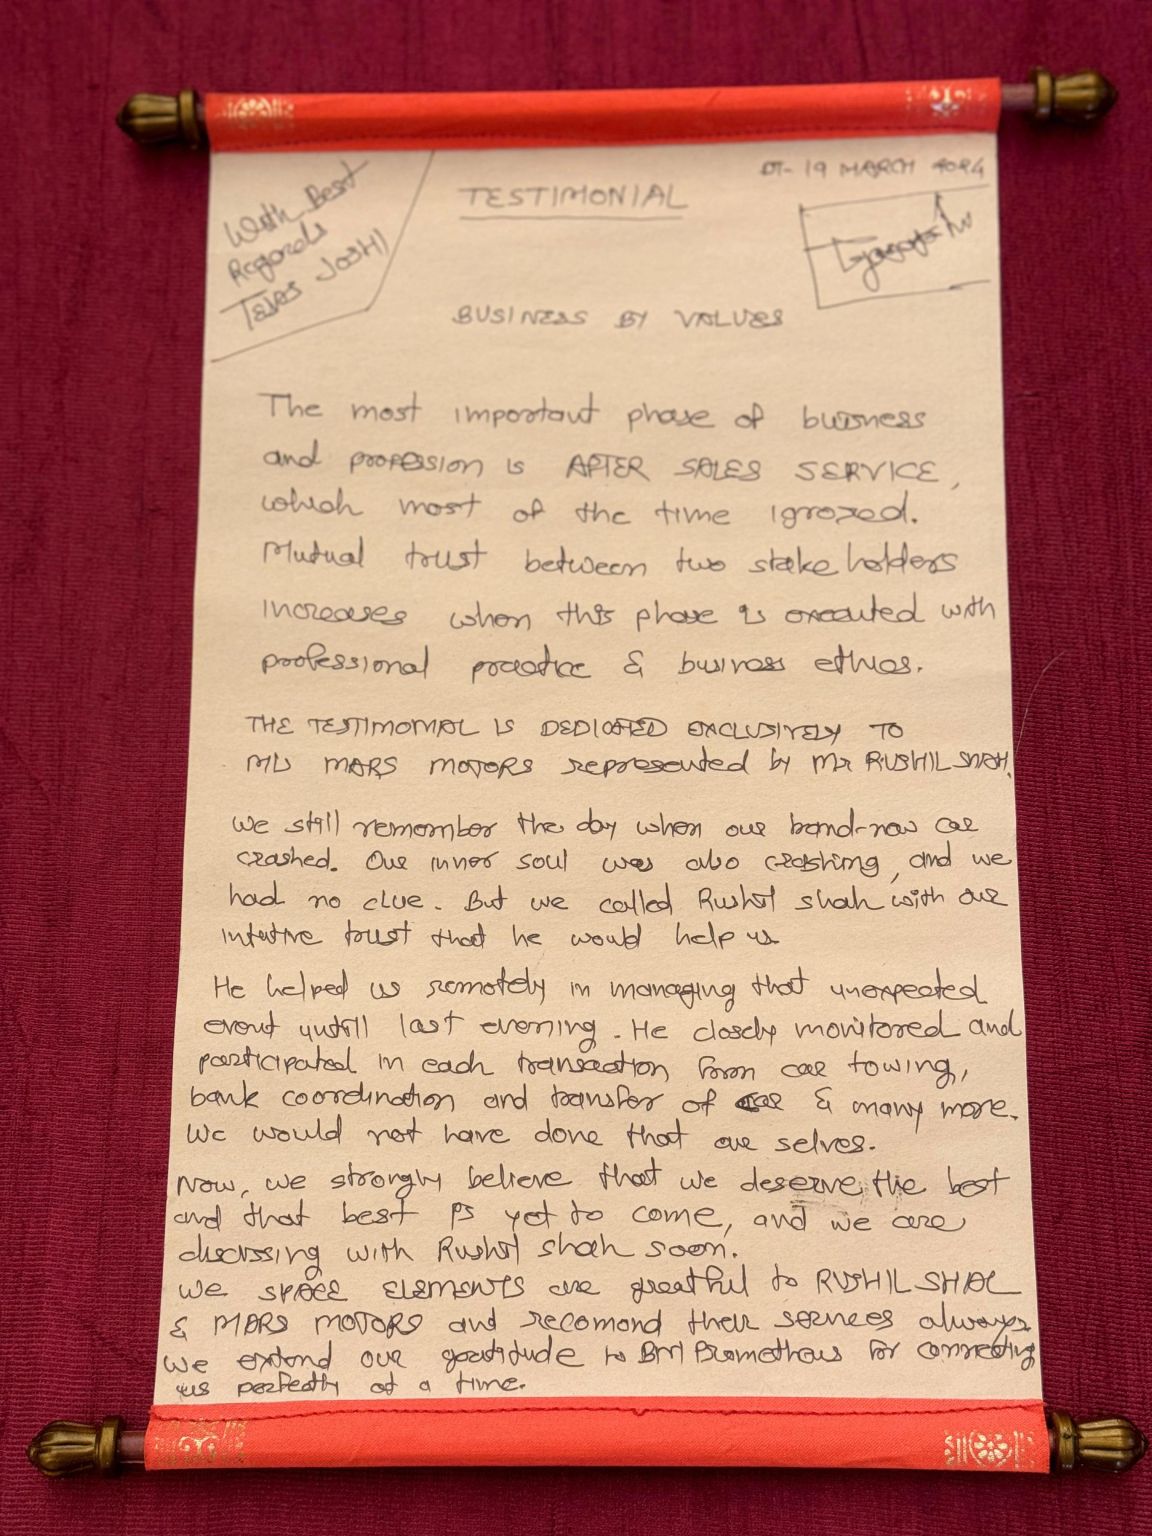 With Best
Regards
Tejas JOSHI
DT- 19 MARCH 2024
TESTIMONIAL
BUSINESS BY VALUES
The most important phase of business
and profession is AFTER SALES SERVICE,
which most of the time ignored.
Mutual trust between two stake holders
increases when this phase is executed with
professional practice & business ethics.
THE TESTIMONIAL IS DEDICATED EXCLUSIVELY TO
MARS MOTORS represented by Mr RUSHIL SHAH.
We still remember the day when our brand-new car
crashed. Our inner soul was also crashing, and we
had no clue. But we called Rushil shah with our
intutive trust that he would help us
He helped us remotely in managing that unexpected
event untill last evening. He closely monitored and
participated in each transaction from car towing,
bank coordination and transfer of car & many more.
We would not have done that our selves.
Now, we strongly believe that we deserve the best
and that best is yet to come, and we are
discussing with Rushil shah soon.
We SPACE ELEMENTS are greatful to RUSHIL SHAH
& MARS MOTORS and recomond their services always.
We extend our gratitude to BNI Prometheus for connecting
us perfectly at a time.